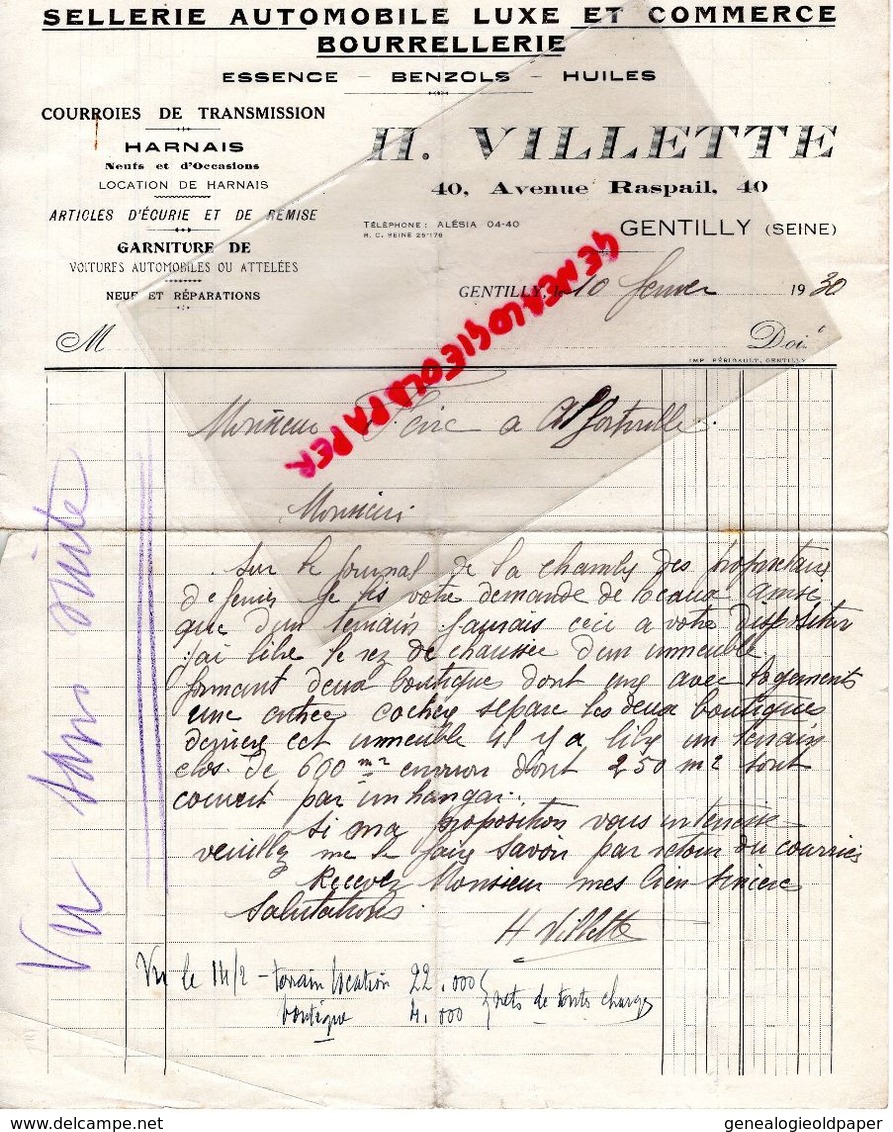 SELLERIE AUTOMOBILE LUXE ET COMMERCE
BOURRELLERIE
ESSENCE - BENZOLS - HUILES
COURROIES DE TRANSMISSION
HARNAIS
Neufs et d'Occasions
LOCATION DE HARNAIS
ARTICLES D'ÉCURIE ET DE REMISE
GARNITURE DE
VOITURES AUTOMOBILES OU ATTELÉES
NEUF ET RÉPARATIONS
H. VILLETTE
40, Avenue Raspail, 40
TÉLÉPHONE : ALÉSIA 04-40
R. C. SEINE 25-176
GENTILLY (SEINE)
GENTILLY, le 10 fevrier 1930
M Doit
IMP. PÉRIGAULT, GENTILLY
GENEALOGIEOLDPAPER
Monsieur a Alfortville.
Monsieur
Sur le journal de la chambre des propretaires
de fevrier je lis votre demande de locaux ainsi
que d'un terrain j'aurais ceci a votre disposition
j'ai libre le rez de chaussée d'un immeuble
formant deux boutiques dont une avec logements
une entrée cochère separe les deux boutiques
derriere cet immeuble il y a libre un terrain
clos de 600 m2 environ dont 250 m2 sont
couvert par un hangar.
Si ma proposition vous interesse
veuillez me le faire savoir par retour du courrier
Recevez Monsieur mes bien sincere
Salutations.
H Villette
Vu le 14/2 - terrain location 22.000
boutique 4.000
nets de touts charges
Vu sans suite
genealogieoldpaper